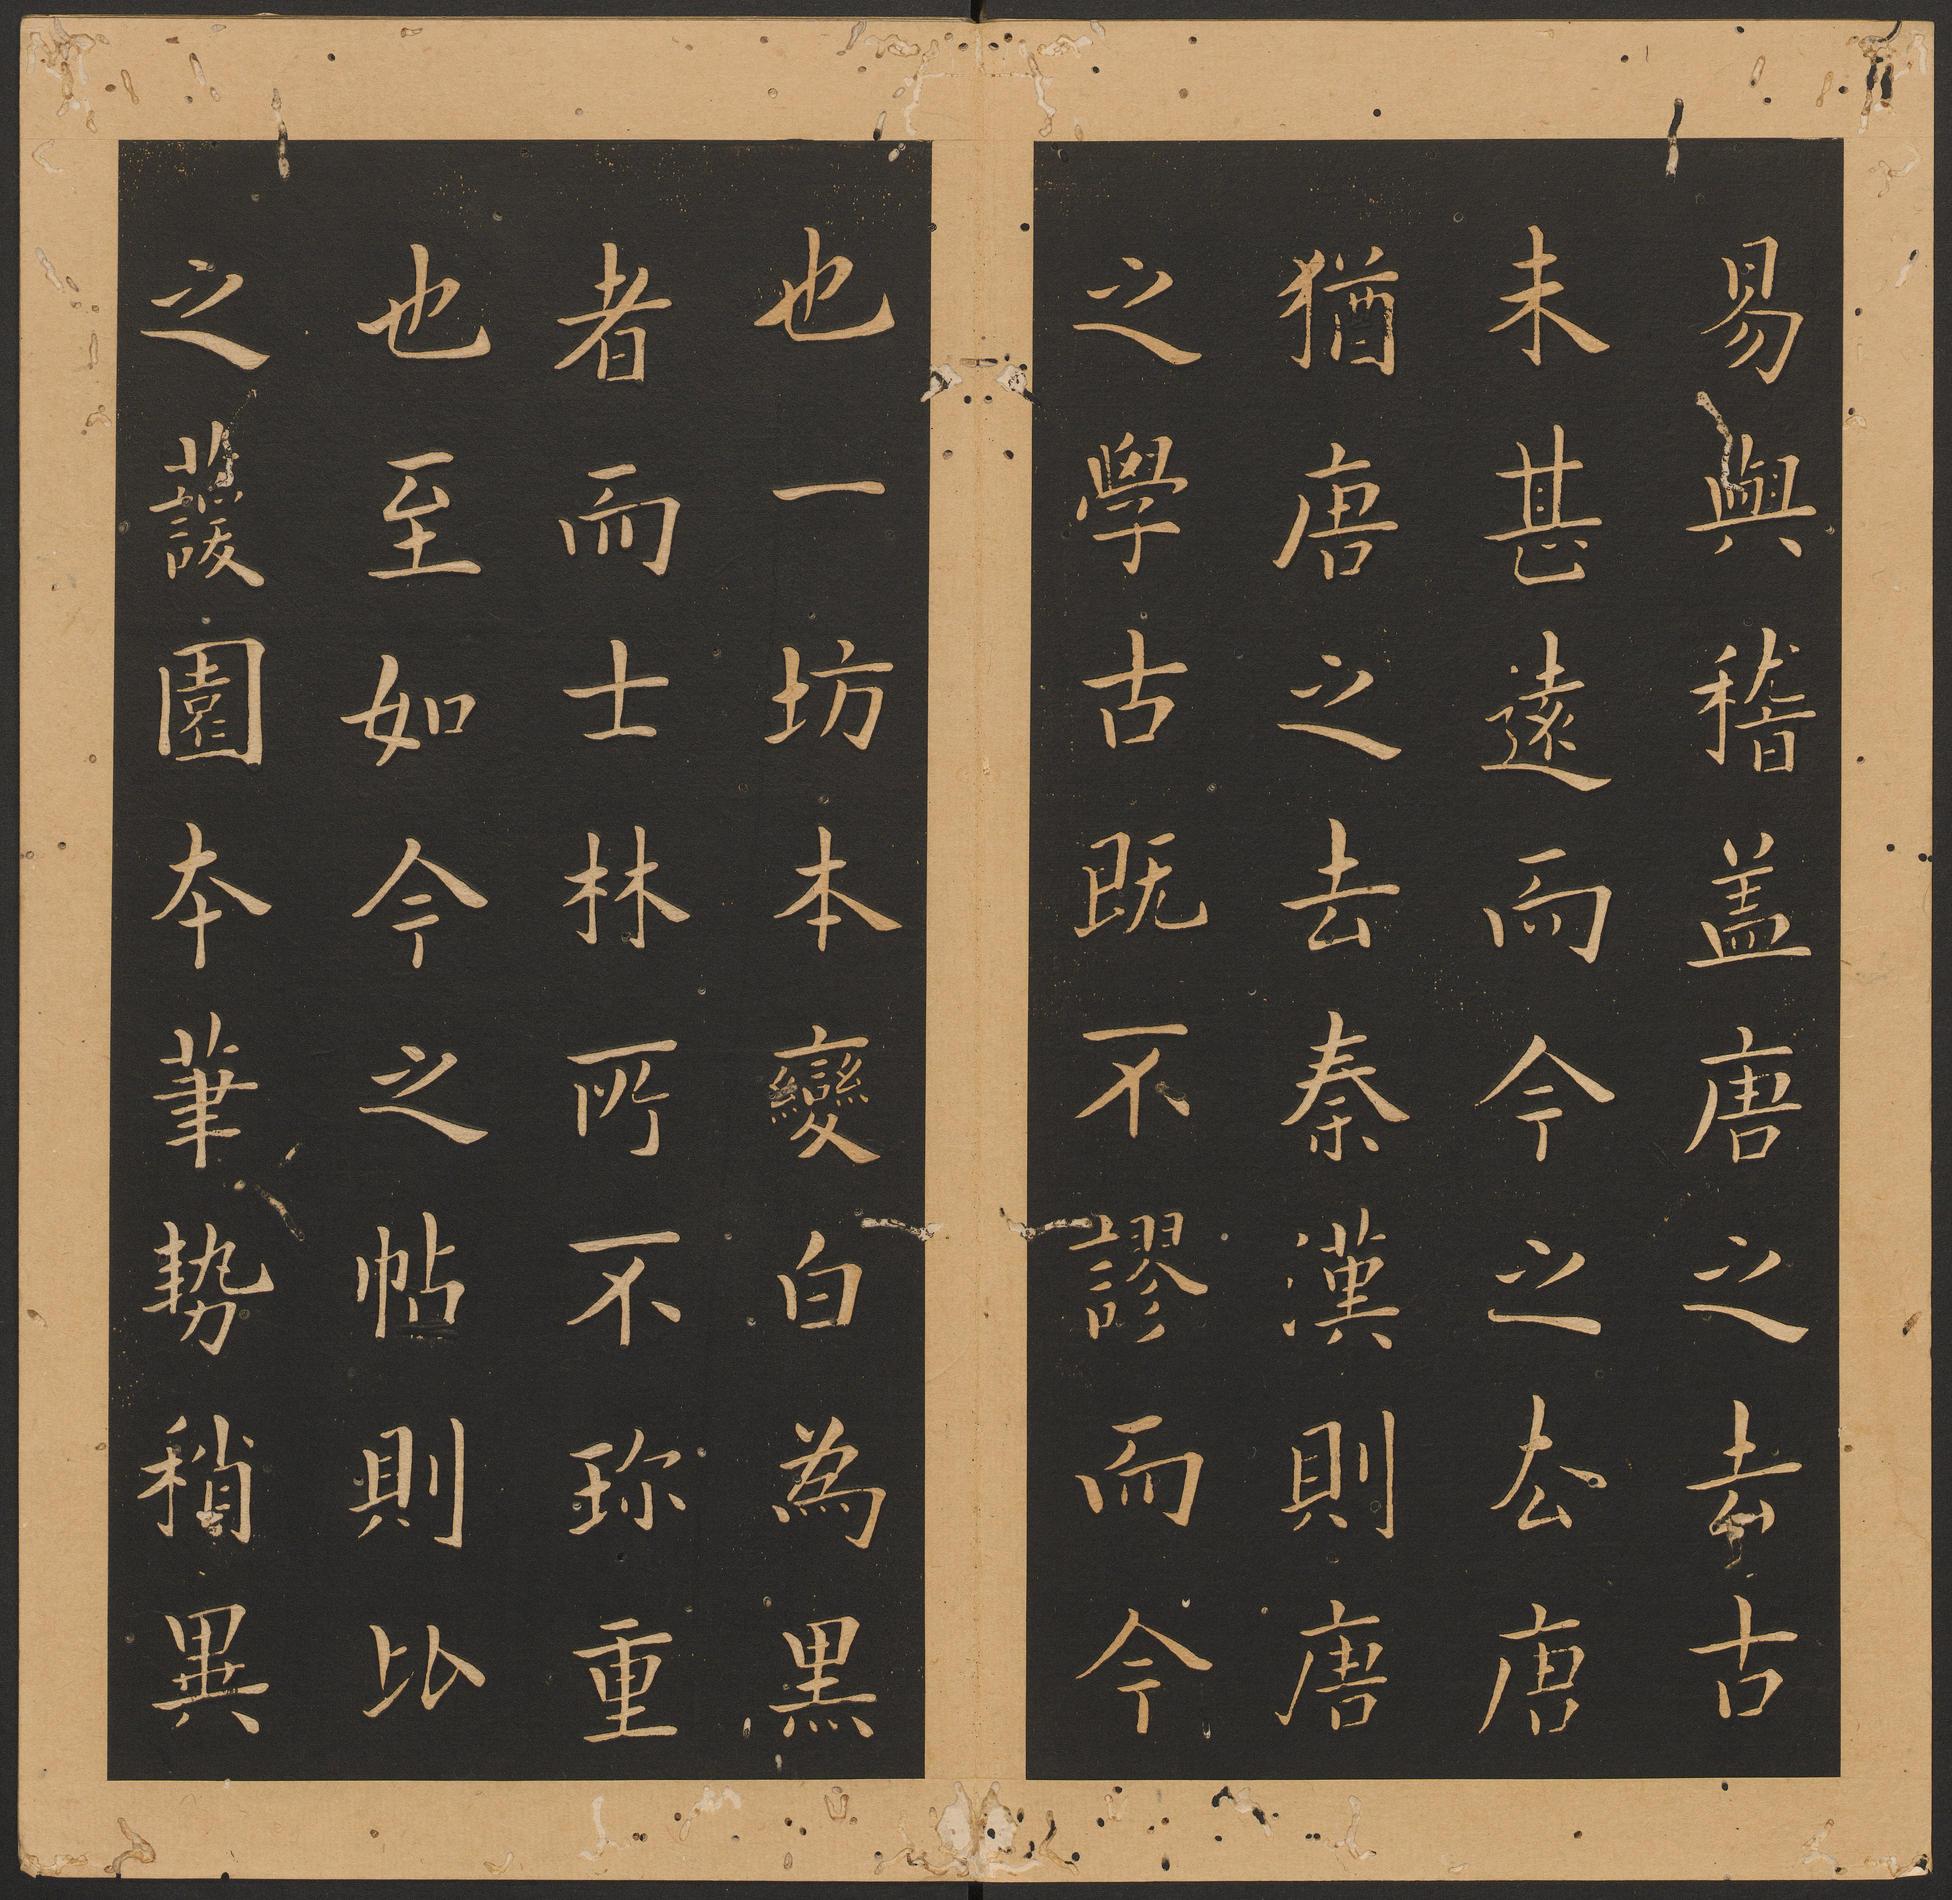 易與稽盖唐之去古
未甚遠而今之厺唐
猶唐之去秦漢則唐
之學古既不謬而今
也一坊本變白為黑
者而士林所不珎重
也至如今之帖則比
之蘐園夲筆勢稍異